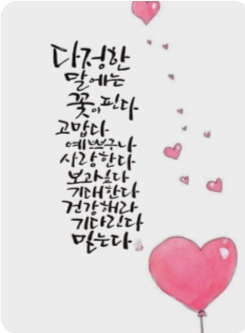 다정한
말에는
꽃이 핀다
고맙다
예쁘구나
사랑한다
보고싶다
기대한다
건강해라
기다린다
믿는다